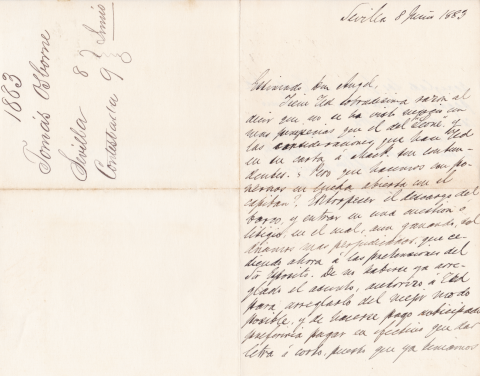 1883
Tomás Osborne
Sevilla 8 Junio
Contestada 9
Sevilla 8 Junio 1883
Estimado Don Angel,
Tiene Ud sobradisima razon al
decir que no se ha visto
mas que el del
las consideraciones que hace Ud
en su carta á son contun-
dentes. Pero que hacemos con po-
nernos en lucha abierta con el
capitan? Entorpecer el descargo del
barco, y entrar en una cuestion ó
litigio, en el cual, aun ganando, sal
driamos mas perjudicados, que ce-
diendo ahora á las pretenciones del
Sr Espósito. De no haberse ya arre-
glado el asunto, autorizo á Ud
para arreglarlo del mejor modo
posible, y de hacerse pago anticipado
preferiria pagar en efectivo que dar
letra á corto, puesto que ya teniamos